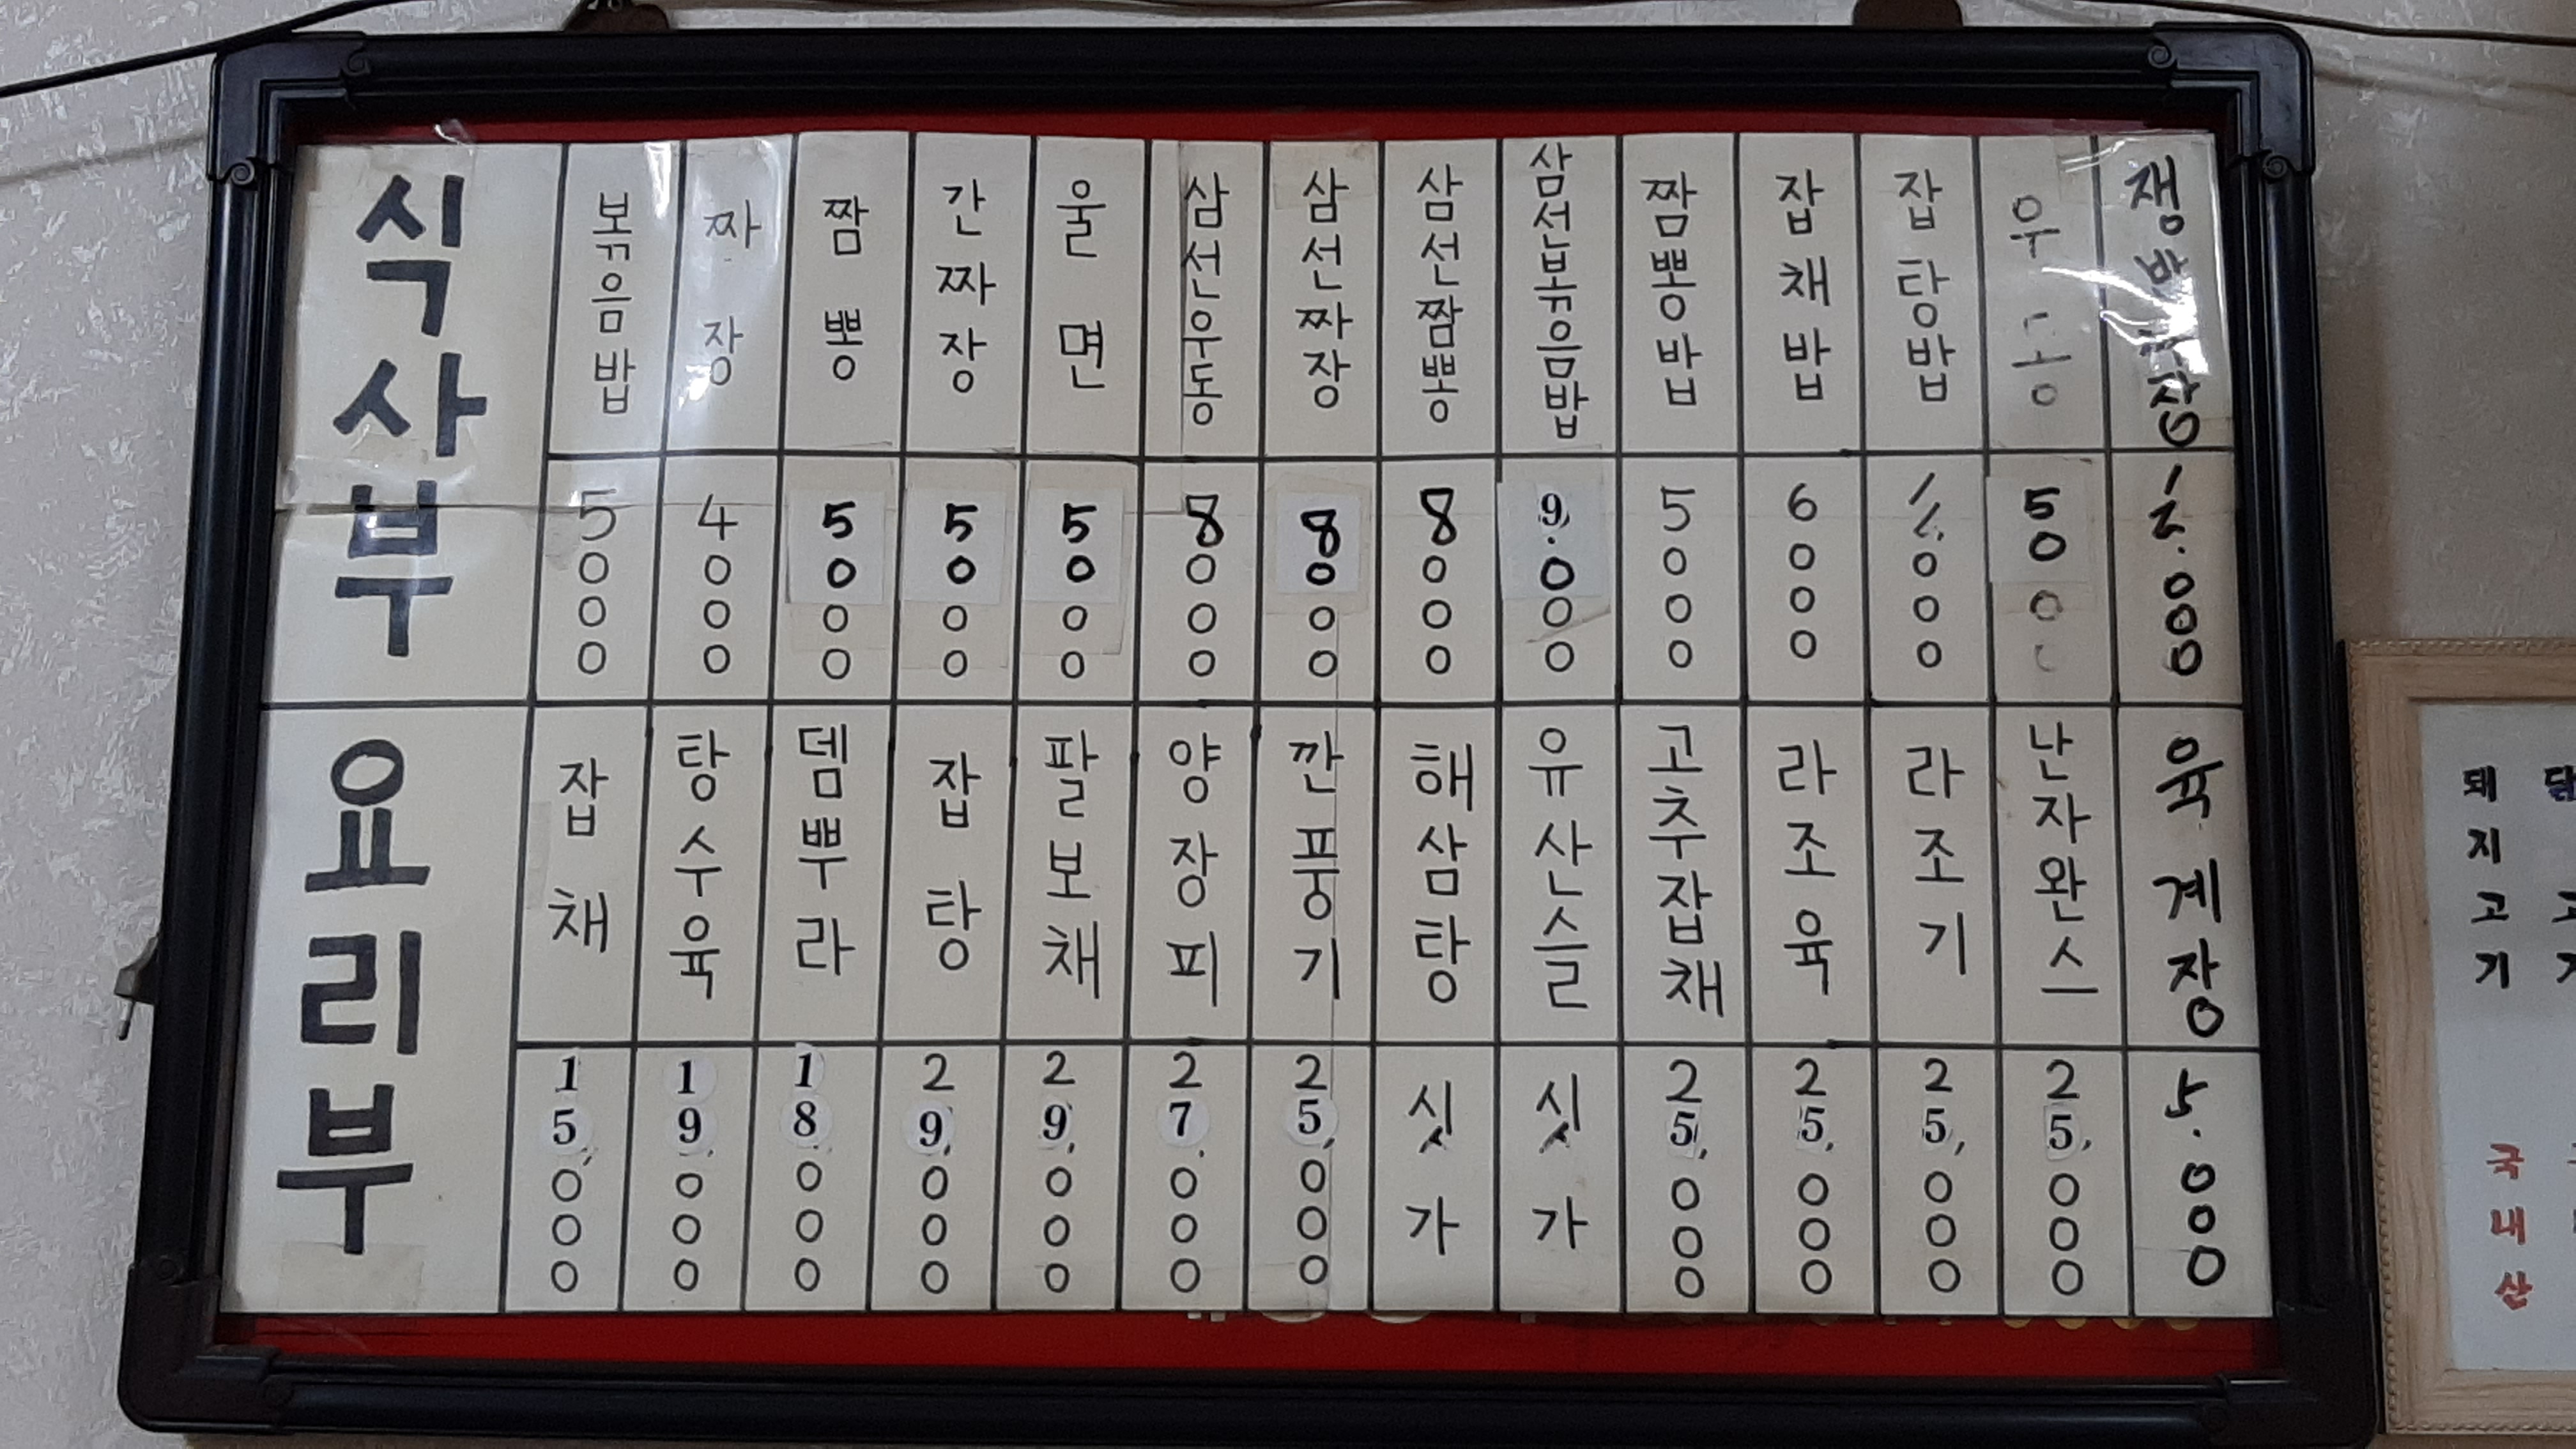 식사부
볶음밥 5000
짜장 4000
짬뽕 5000
간짜장 5000
울면 5000
삼선우동 8000
삼선짜장 8000
삼선짬뽕 8000
삼선볶음밥 9,000
짬뽕밥 5000
잡채밥 6000
잡탕밥 000
우동 5000
쟁반짜장 12.000
요리부
잡채 15,000
탕수육 19,000
뎀뿌라 18,000
잡탕 29,000
팔보채 29,000
양장피 27,000
깐풍기 25,000
해삼탕 싯가
유산슬 싯가
고추잡채 25,000
라조육 25,000
라조기 25,000
난자완스 25,000
육계장 5.000
돼지고기 국내산